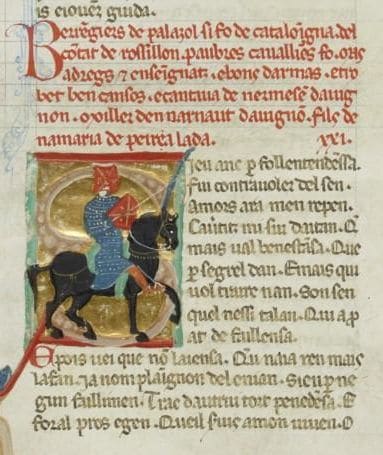 is eiouer guida.
Berengiers de palazol si fo de cataloigna del
cōtat de rossillon. paubres cauallīes fo. mas
adregs ⁊ enseignatz. e bons darmas. e tro
bet ben cansos. e cantaua de nermesē dauig
non. moiller den narnaut dauignō. filz de
namaria de peirea lada. .xxi.
ieu anc ꝑ follentendessa.
fui contrauoler del sen.
amors ara men repen.
mais ual benestāsa. Que
ꝑ segrel dan. E mais qui
uol tirare nan. Son sen
quel nessi talan. Qui aꝑ
at de fallensa.
Epois uei que nō laiensa. Qu naia ren mais
lafan. ia nom plaīgnon del enian. Sieu ꝑ ne
gun fallimen. Trac dautrui tort penedēsa. E
foral pros e gen. Queil